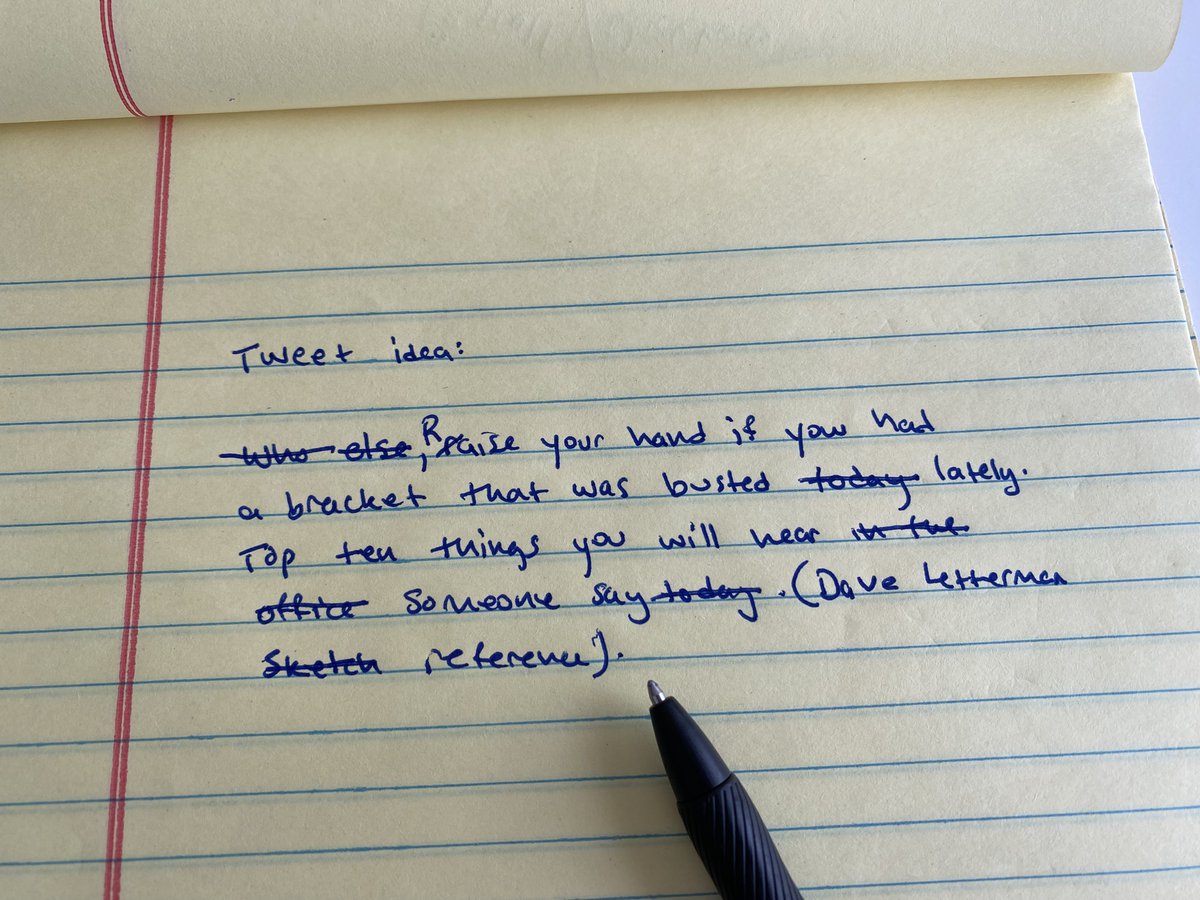 Tweet idea:
Who else, Raise your hand if you had
a bracket that was busted today lately.
Top ten things you will hear in the
office someone say today. (Dave Letterman
Sketch reference).